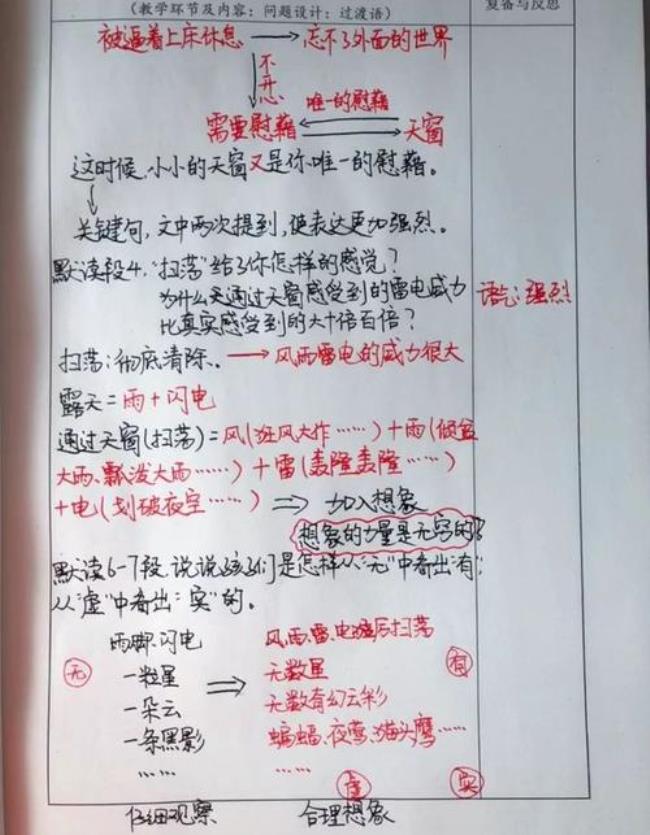 （教学环节及内容：问题设计：过渡语）
复备与反思
被逼着上床休息 → 忘不了外面的世界
不开心
唯一的慰藉
需要慰藉 天窗
这时候，小小的天窗又是你唯一的慰藉。
关键句，文中两次提到，使表达更加强烈。
默读段4，"扫荡"给了你怎样的感觉？
为什么通过天窗感受到的雷电威力 语气：强烈
比真实感受到的大十倍百倍？
扫荡：彻底清除。→ 风雨雷电的威力很大
露天=雨+闪电
通过天窗（扫荡）=风（狂风大作……）+雨（倾盆
大雨、瓢泼大雨……）+雷（轰隆轰隆……）
+电（划破夜空……）⇒ 加入想象
想象的力量是无穷的
默读6-7段，说说孩子们是怎样从"无"中看出"有"，
从"虚"中看出"实"的。
雨脚、闪电 风、雨、雷、电 扫荡
无 一粒星 ⇒ 无数星 有
一朵云 无数奇幻云彩
一条黑影 蝙蝠、夜莺、猫头鹰……
…… ……
虚 实
仔细观察 合理想象